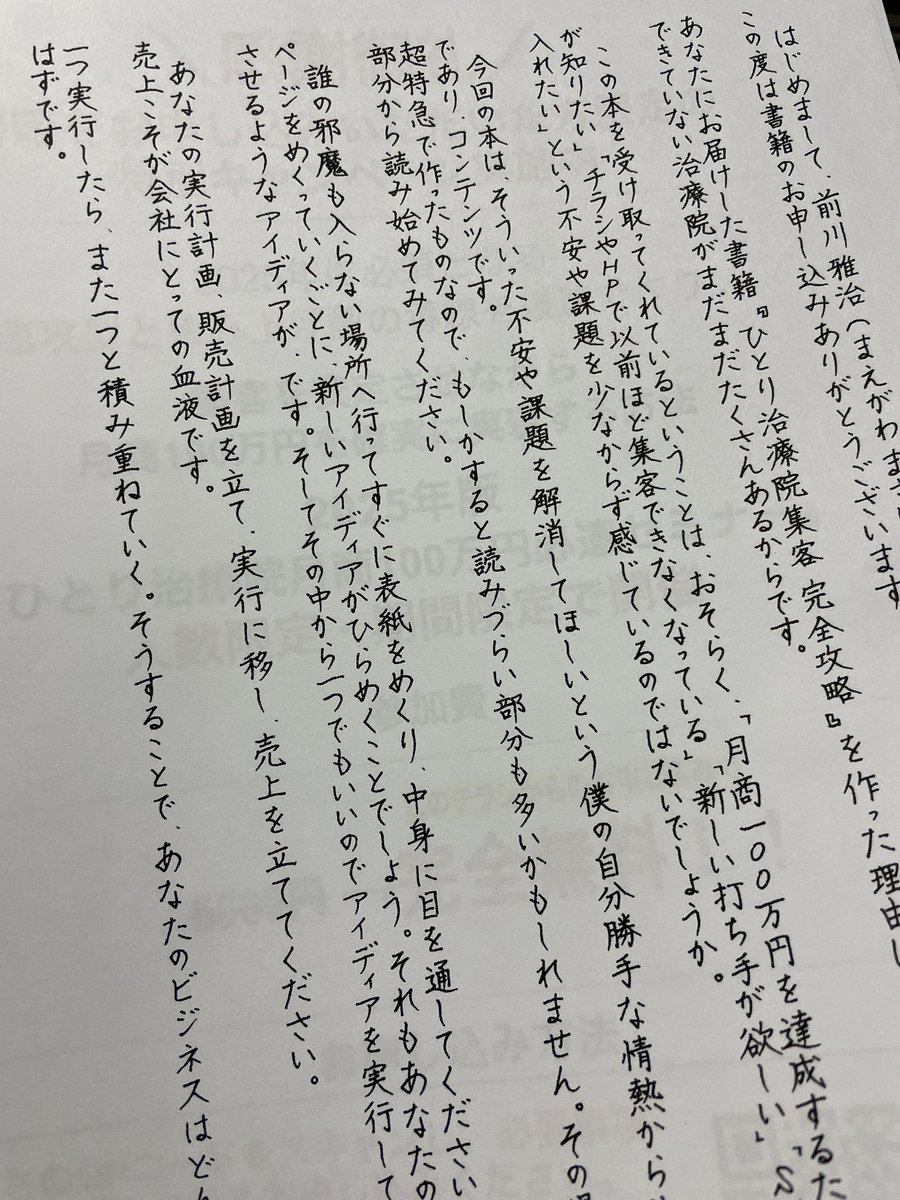 はじめまして、前川雅治(まえがわまさ
この度は書籍のお申し込みありがとうございます
あなたにお届けした書籍『ひとり治療院集客 完全攻略』を作った理由
できていない治療院がまだまだたくさんあるからです。
この本を受け取ってくれているということは、おそらく、「月商一〇〇万円を達成するた
が知りたい」「チラシやHPで以前ほど集客できなくなっている」「新しい打ち手が欲しい」「S
入れたい」という不安や課題を少なからず感じているのではないでしょうか。
今回の本は、そういった不安や課題を解消してほしいという僕の自分勝手な情熱から
であり、コンテンツです。
超特急で作ったものなので、もしかすると読みづらい部分も多いかもしれません。その
部分から読み始めてみてください。
誰の邪魔も入らない場所へ行ってすぐに表紙をめくり、中身に目を通してください
ページをめくっていくごとに、新しいアイディアがひらめくことでしょう。それもあなたの
させるようなアイディアが、です。そしてその中から一つでもいいのでアイディアを実行して
あなたの実行計画、販売計画を立て、実行に移し、売上を立ててください。
売上こそが会社にとっての血液です。
一つ実行したら、また一つと積み重ねていく。そうすることで、あなたのビジネスはどん
はずです。